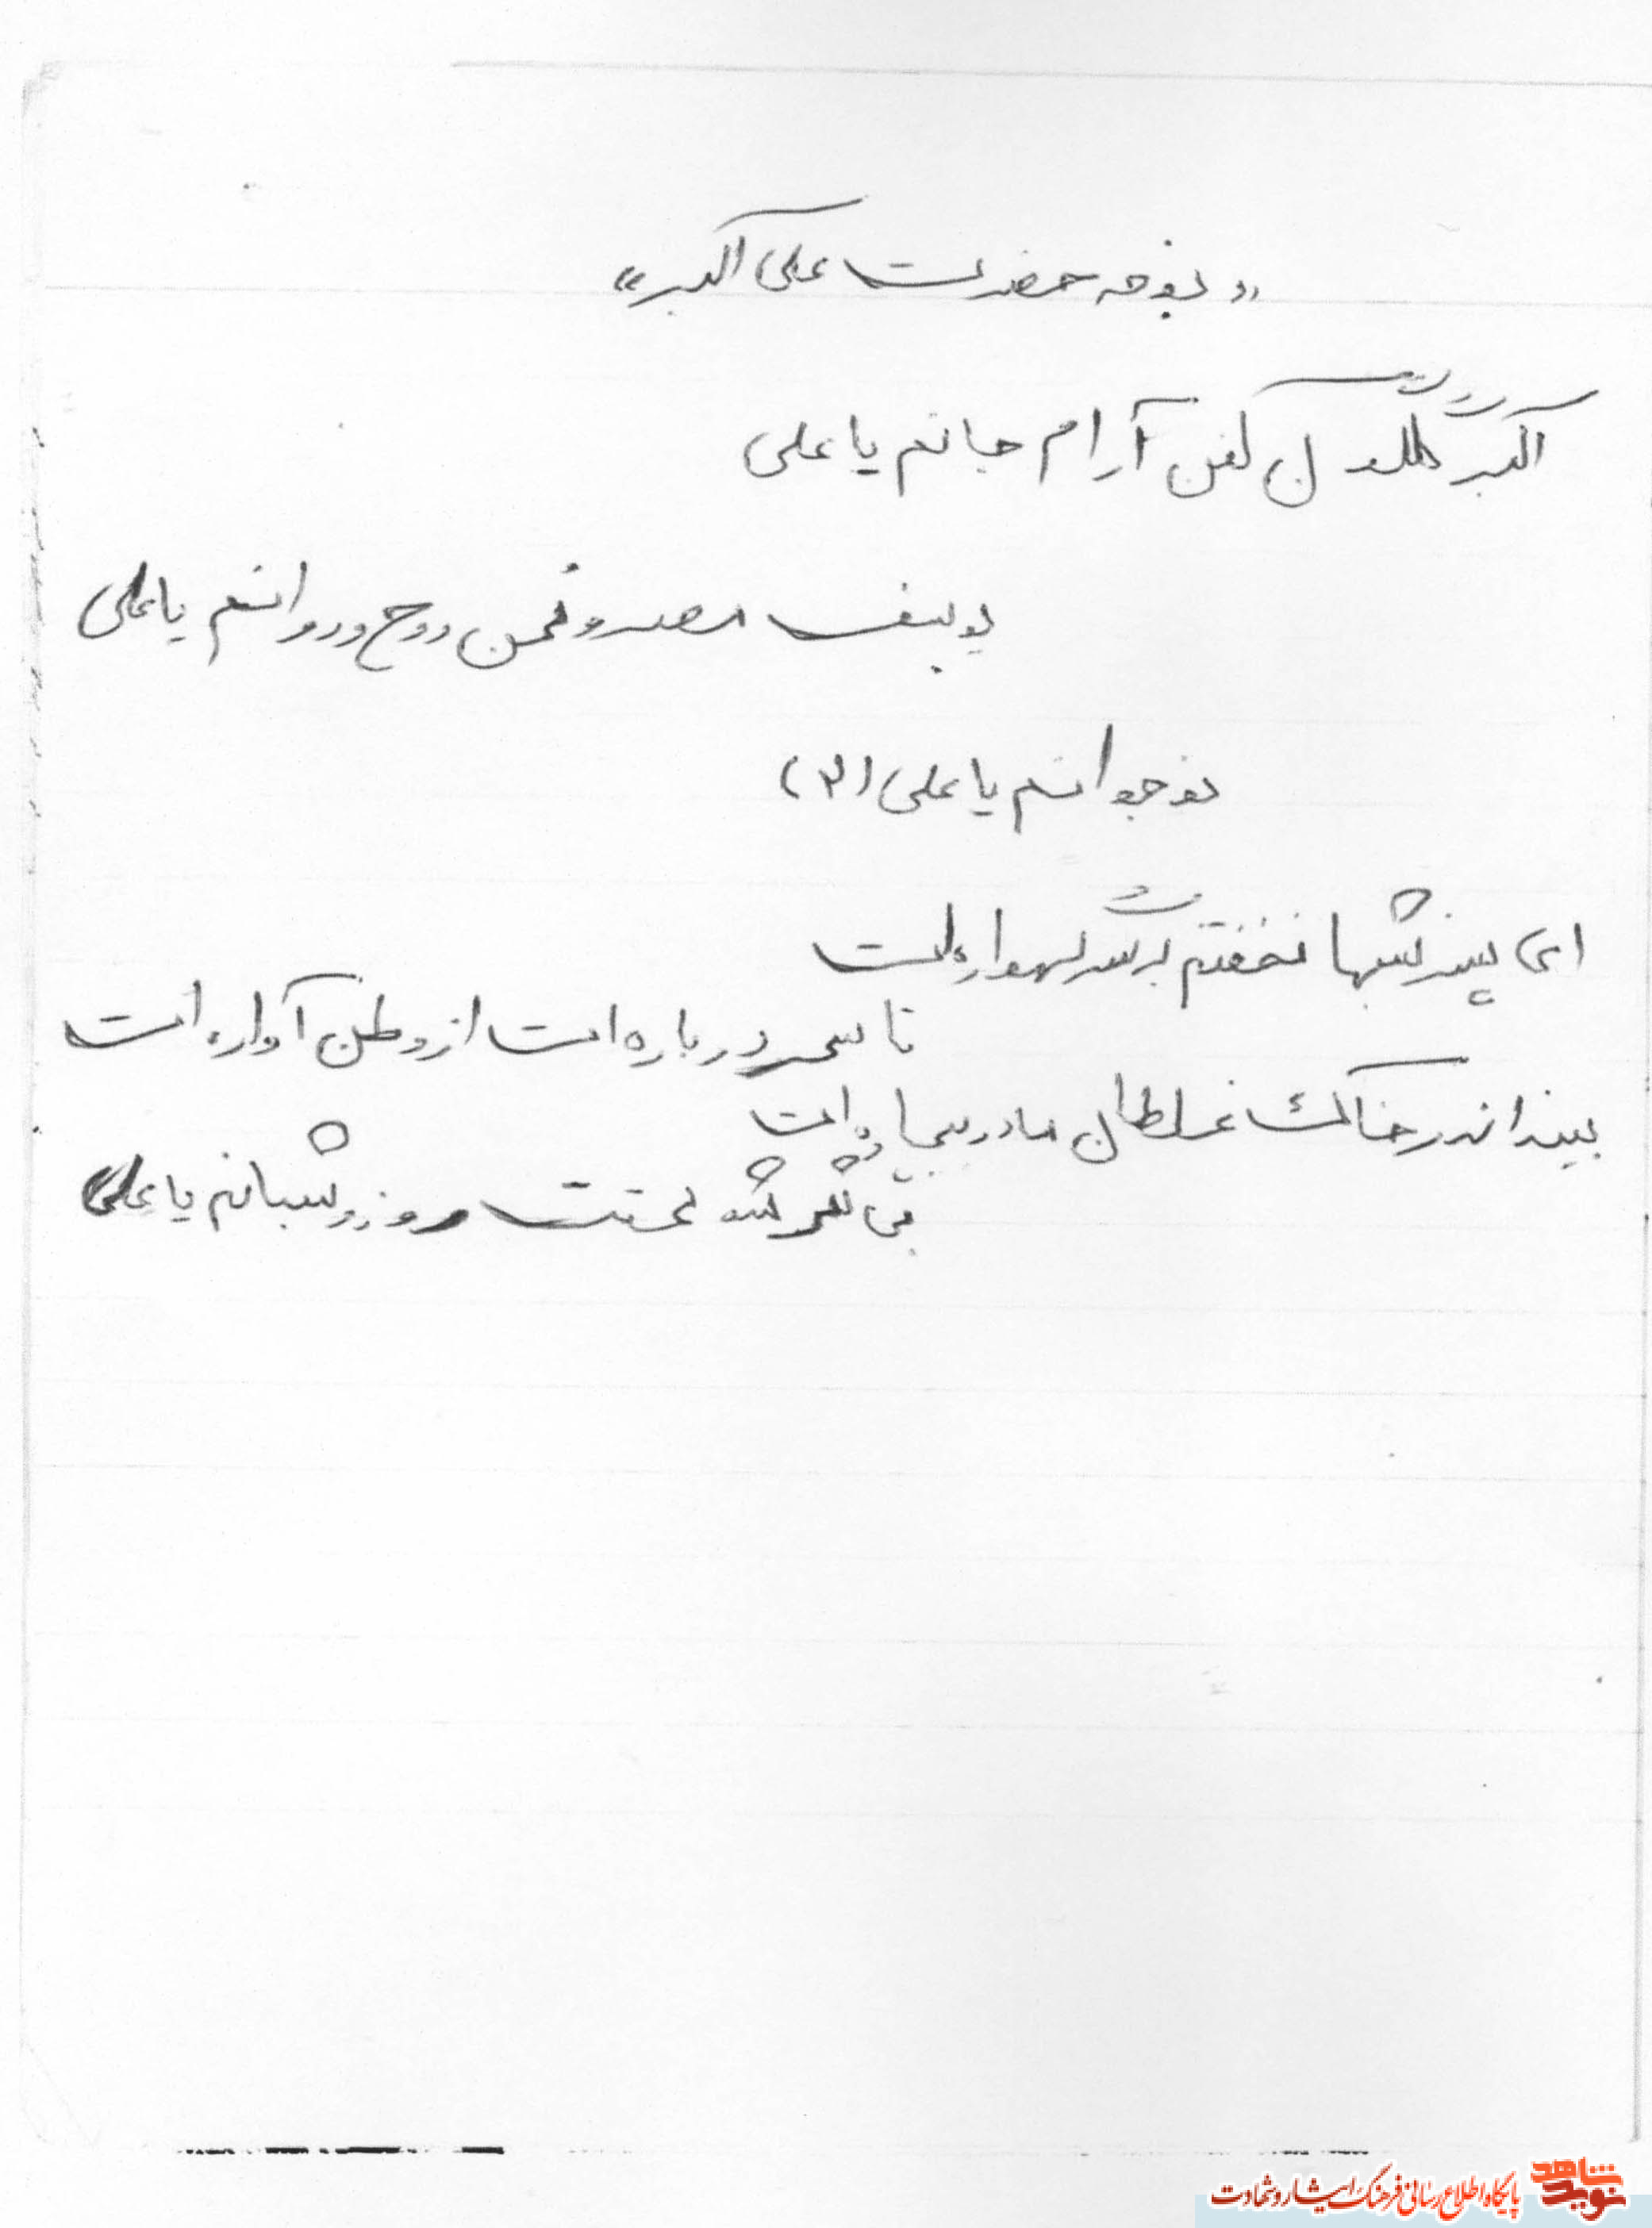 «نوحه حضرت علی اکبر»
اکبر گلگون کفن آرام جانم یا علی
یوسف مصر و من روح و روانم یا علی
نوجوانم یا علی (۲)
ای پسر شبها نخفتم بر سر گهواره ات
تا سحر در باره ات از وطن آواره ات
بین اندر خاک غلطان مادر بیچاره ات
بی ثمر شد محنت روز و شبانم یا علی
نوید شاهد
پایگاه اطلاع رسانی فرهنگ ایثار و شهادت